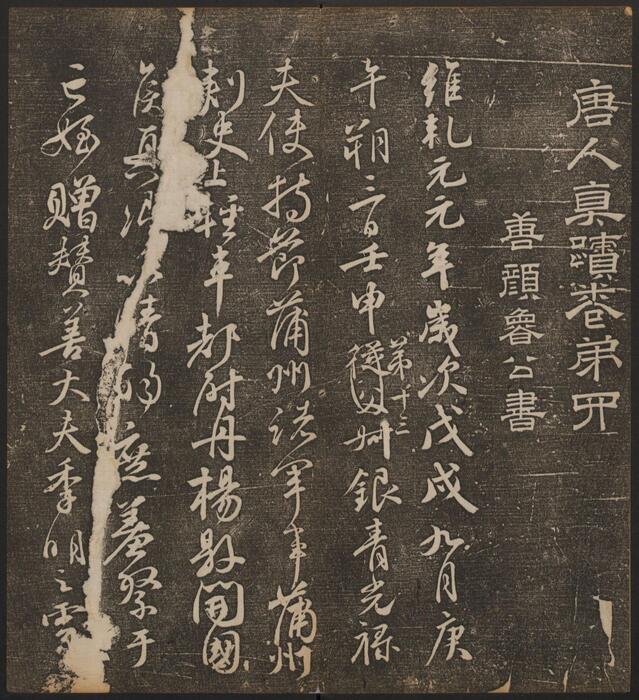 唐人真蹟卷弟四
善顔魯公書
維乾元元年歲次戊戌九月庚
午朔三日壬申第十三從父叔銀青光祿
夫使持節蒲州諸軍事蒲州
刺史上輕車都尉丹楊縣開國
侯真卿以清酌庶羞祭于
亡姪贈贊善大夫季明之靈